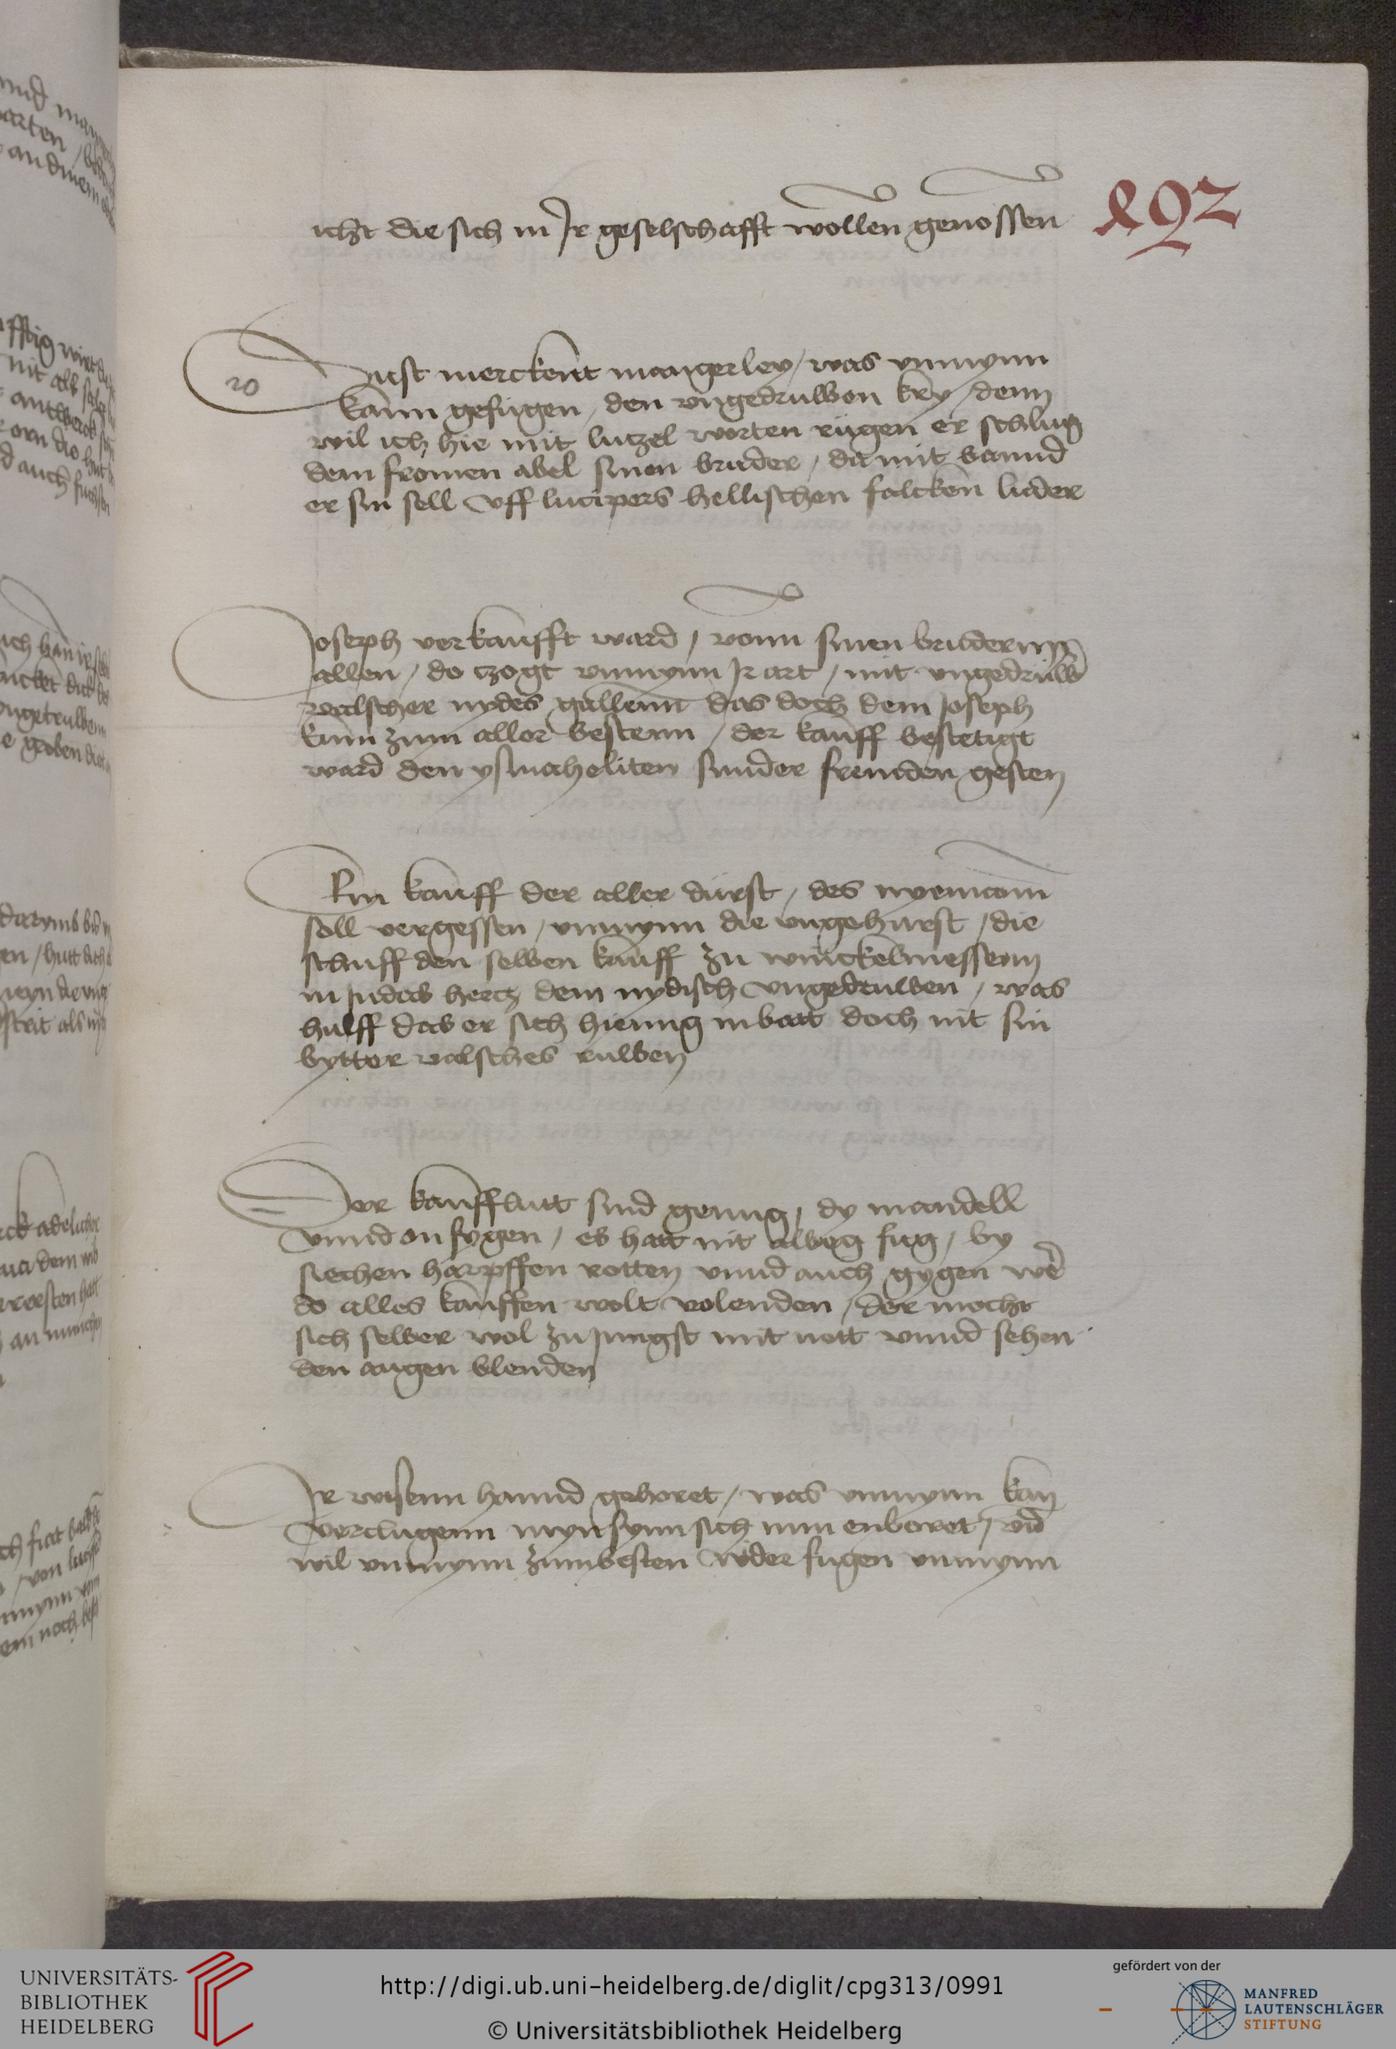 492
icht die sich in Jr geselschafft wollen genossen
20
Nust merckent mangerley / was vnmynn
kann gefugen / den vngedruwen kry / denn
wil ich hie mit lutzel worten rügen er schlug
dem fromen abel sinen bruder / da mit bannd
er sin sell vff lucipers hellischen falcken luder
Joseph verkaufft ward / vonn sinen brudernn
allen / do czogt vnmynn Jr art / mit vngedruw
valscher nydes gallenn das doch dem Joseph
kam zum aller bestenn / der kauff bestetigt
ward den ysmaheliten sunder fremden gesten
Ein kauff der aller durst / des nyemann
soll vergessen / vnmynn die vngehurst / die
schuff den selben kauff zu winckelmessenn
in Judas hercz dem nydisch vngedruwen / was
hulff das er sich hieng in batt doch nit sin
bytter valsches ruwen
Der kaufflutt sind genug / dy mandell
vnnd on fygen / es hatt nit alweg fug / by
siechen harpffen rotten vnnd auch gygen wer
do alles kauffen wolt volenden / der mocht
sich selber wol zu Jungst mit nott vnnd sehen
den augen blenden
Jr wisenn hannd gehoret / was vnmynn kan
verclugenn myn synn sich nun enboret / vnd
wil vnmynn zumbesten wider fugen vnmynn
UNIVERSITÄTS-
BIBLIOTHEK
HEIDELBERG
http://digi.ub.uni-heidelberg.de/diglit/cpg313/0991
© Universitätsbibliothek Heidelberg
gefördert von der
MANFRED
LAUTENSCHLÄGER
STIFTUNG